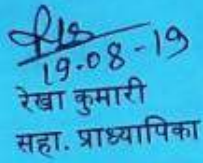 19.08-19
रेखा कुमारी
सहा. प्राध्यापिका